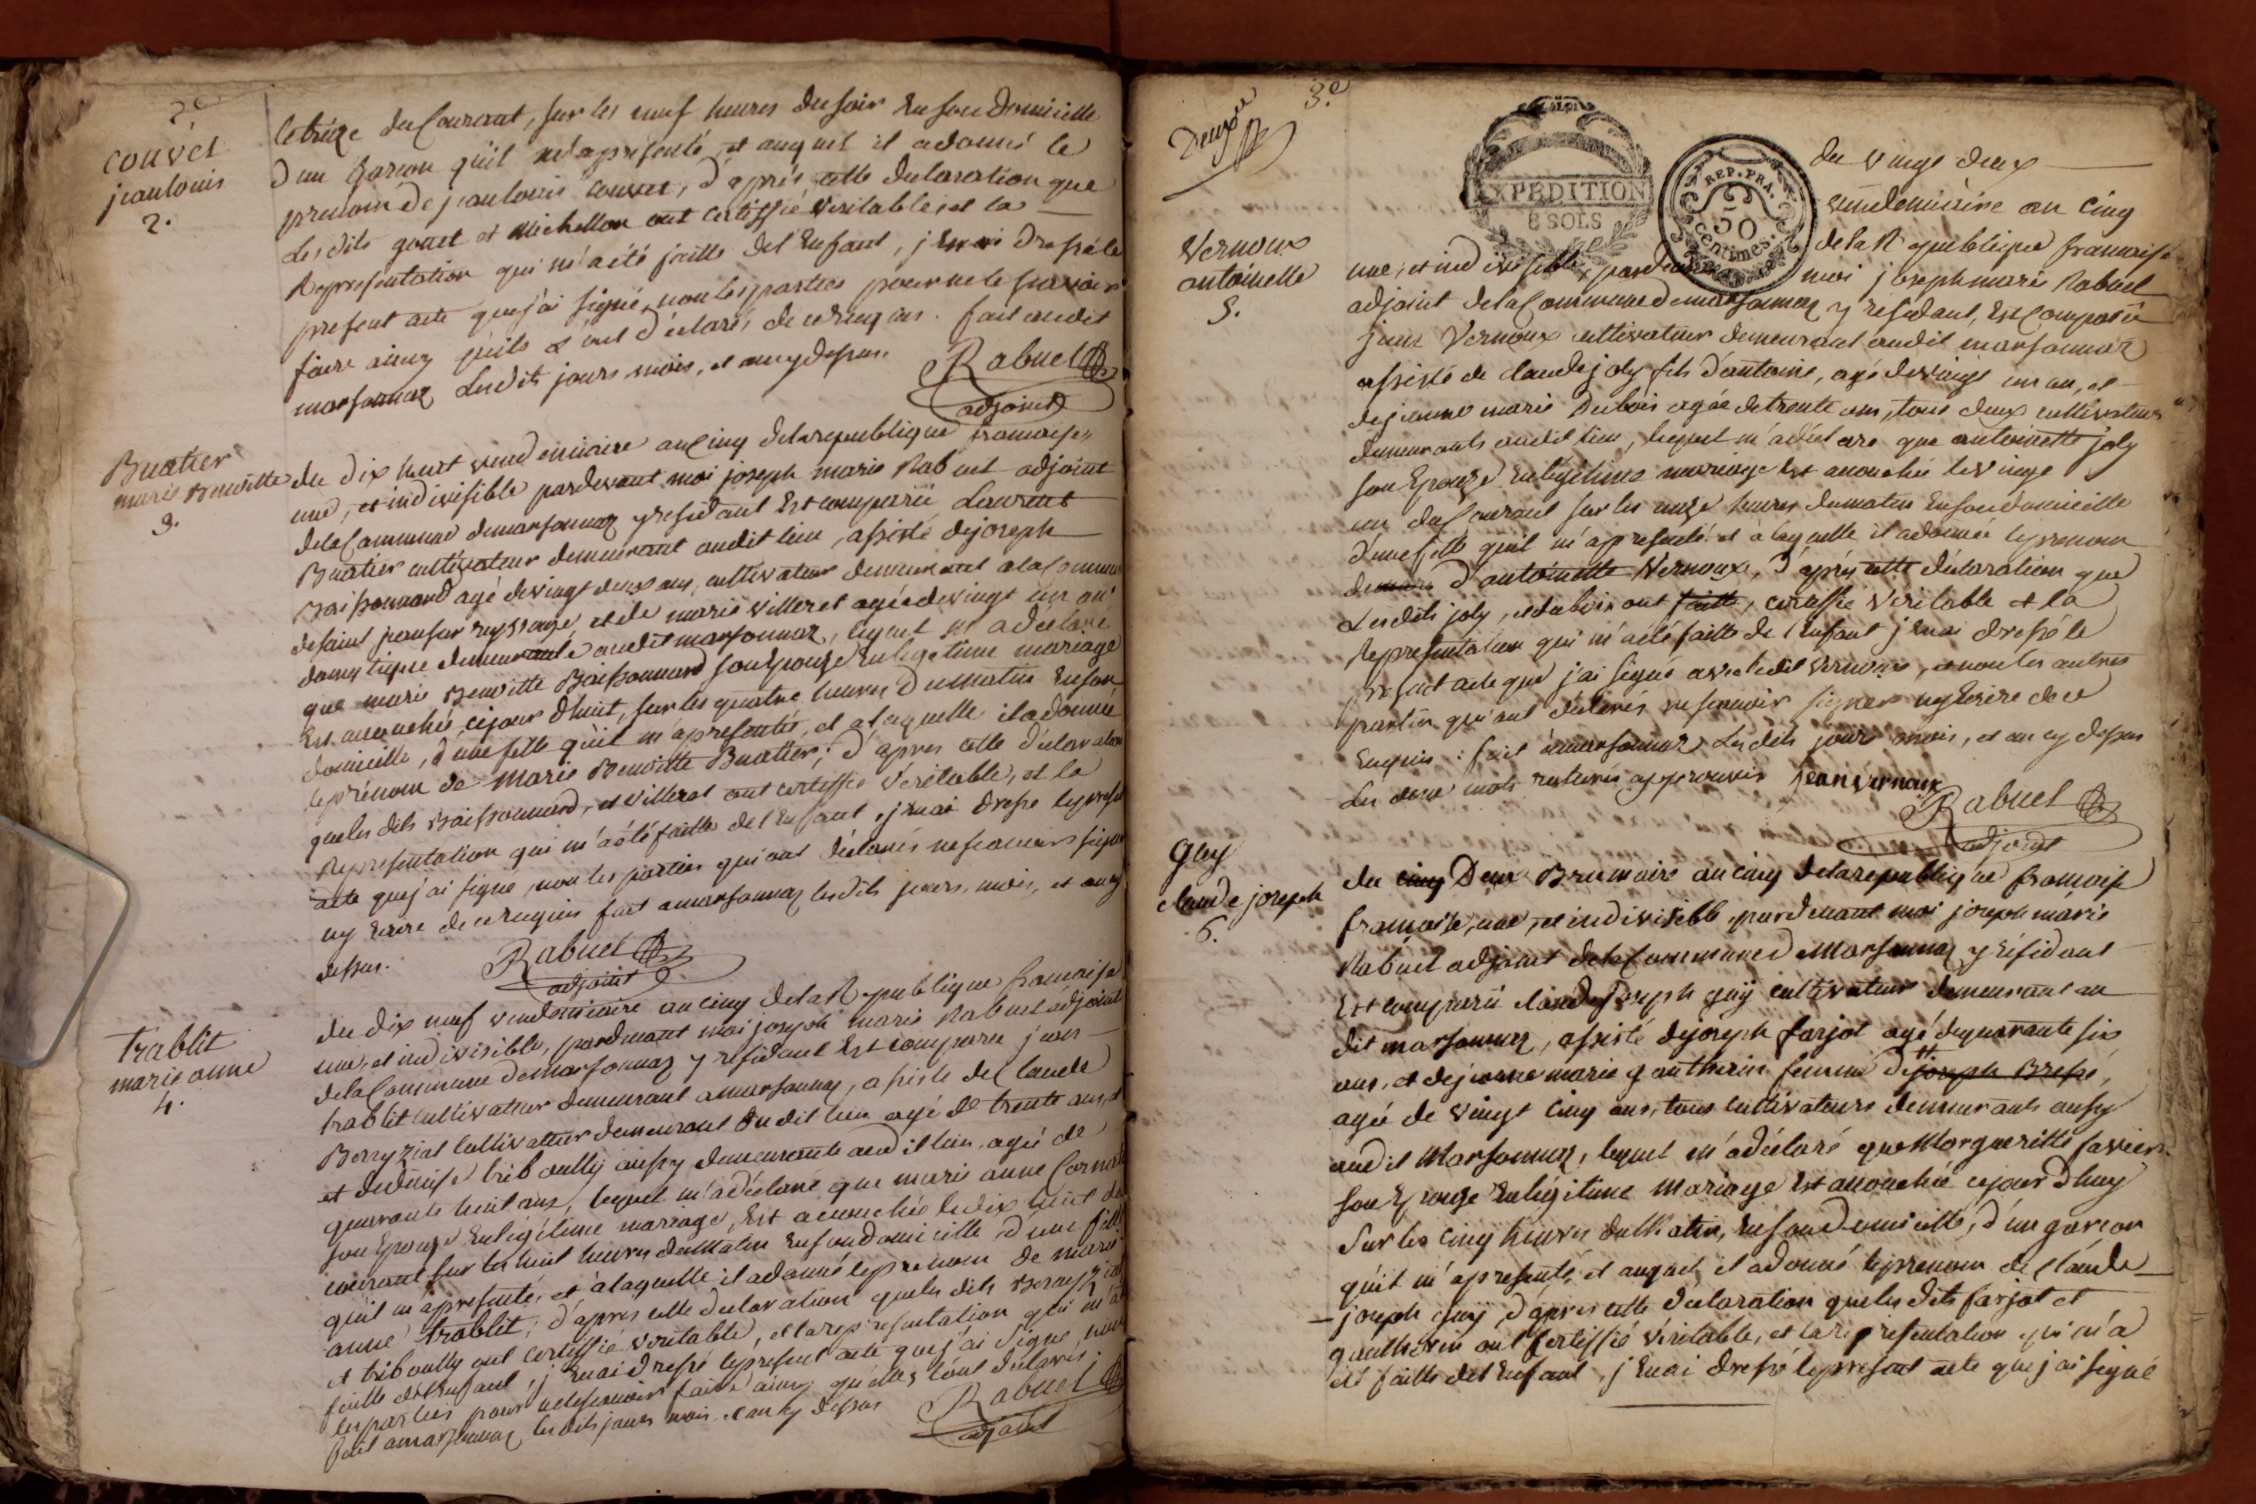 2e
couvet
jean louis
2.
le treize du Courant, sur les neuf heures du soir En son Domicille
d'un garcon quil m'a présenté, et auquel il adonné le
prenom de jean louis couvet, d'après cette declaration que
Lesdits gonet et Michellon ont certiffié veritable, et la
Representation qui m'a été faitte de l'Enfant, j'En ai dressé le
present acte que j'ai signé, non les parties pour ne le scavoir
faire ainsy quils l'ont déclarés de ce Requis. fait audit
marsonnaz Lesdits jours mois, et an cy dessus.
Rabuel
adjoint
Buatier
marie Benoitte
3.
du dix huit vend emiaire an Cinq de la republique francaise
une, et indivisible pardevant moi joseph marie Rabuel adjoint
de la Commune de marsonnaz y residant Est comparü Laurent
Buatier cultivateur demeurant audit lieu, assisté de joseph
Boissonnard agé de vingt deux ans, cultivateur demeurant a la Commune
de saint jean sur reyssouze, et de marie villeret agée de vingt un an
domestique demeurante audit marsonnaz, lequel m'a déclaré
que marie Benoitte Boissonnard son Epouze En légitime mariage
Est accouchée cejourd'huit, sur les quatre heures du matin En son
domicille, d'une fille quil m'a presentés, et a laquelle il adonnée
le prénom de Marie Benoitte Buatier; d'apres cette declaration
que les dits Boissonnard, et villeret ont certiffié véritable, et la
Representation qui m'a été faitte de l'Enfant, j'En ai dressé le present
acte que j'ai signé, non les parties qui ont déclarés ne scavoir signer
ny Ecrire de ce Requis fait a marsonnaz lesdits jours, mois, et an cy
dessus.
Rabuel
adjoint
trablit
marie anne
4.
du dix neuf vendemiaire an cinq de la Republique francaise
une, et indivisible, pardevant moi joseph marie Rabuel adjoint
de la Commune de marsonnaz y residant Est comparu jean
trablit cultivateur demeurant a marsonnaz, assisté de Claude
Berryziat cultivateur demeurant audit lieu agé de trente ans, et
et de denise triboully aussy demeurante audit lieu agée de
quarante huit ans, lequel m'a déclaré que marie anne
son Epouze En légitime mariage, Est accouchée le dix huit du
courant sur les huit heures du matin En son domicille d'une fille
quil m'a presentés, et a laquelle il adonné le prenom de marie
anne trablit; d'apres cette declaration que les dits Berryziat
et triboully ont certiffié véritable, et la representation qui m'a été
faitte de l'Enfant, j'En ai dressé le present acte que j'ai signé, non
les parties pour ne le scavoir faire ainsy quelles l'ont declarés.
fait a marsonnaz les dits jours mois, et an cy dessus
Rabuel
adjoint
Deux
3.e
EXPÉDITION
8 SOLS
REP. FRA.
50
centimes.
Vernoux
antoinette
5.
du vingt deux
vendemiaire an cinq
de la Republique francaise
une, et indivisible, pardevant moi joseph marie Rabuel
adjoint de la Commune de marsonnaz y residant, Est comparü
jean Vernoux cultivateur demeurant audit marsonnaz
assisté de claude joly fils d'antoine, agé de vingt un an, et
de jeanne marie Dubois agée de trente ans, tous deux cultivateurs
demeurants audit lieu, lequel m'a déclaré que antoinette joly
son Epouze En légitime mariage Est accouchée le vingt
un du Courant sur les onze heures du matin En son domicille
d'une fille quil m'a presenté et a laquelle il adonné le prenom
d'antoinette Vernoux, d'après cette déclaration que
Les dits joly, et dubois ont faitte, certiffié véritable et la
Representation qui m'a été faitte de l'Enfant j'En ai dressé le
present acte que j'ai signé avec ledit vernoux, et non les autres
parties qui ont déclarés ne scavoir signer ny Ecrire de ce
Enquis: fait a marsonnaz Les dits jour mois, et an cy dessus
Les deux mots raturés approuvés jean vernoux
Rabuel
adjoint
guy
claude joseph
6.
du cinq Deux Brumaire an cinq de la republique francaise
francaise, une, et indivisible pardevant moi joseph marie
Rabuel adjoint de la Commune de Marsonnaz y résidant
Est comparü claude joseph guÿ cultivateur demeurant au
dit marsonnaz, assisté de joseph farjot agé de quarante six
ans, et de jeanne marie gautherin femme de joseph Bressé,
agée de vingt cinq ans, tous cultivateurs demeurants aussy
audit Marsonnaz, lequel m'a déclaré que Margueritte favier
son Epouze En légitime mariage Est accouchée cejourd'huy
sur les cinq heures du Matin, En son Domicille, d'un garcon
quil m'a presenté, et auquel il adonné le prenom de claude
joseph guÿ, d'après cette declaration que les dits farjot et
gautherin ont certiffié véritable, et la representation qui m'a
été faitte de l'Enfant, j'En ai dressé le present acte que j'ai signé